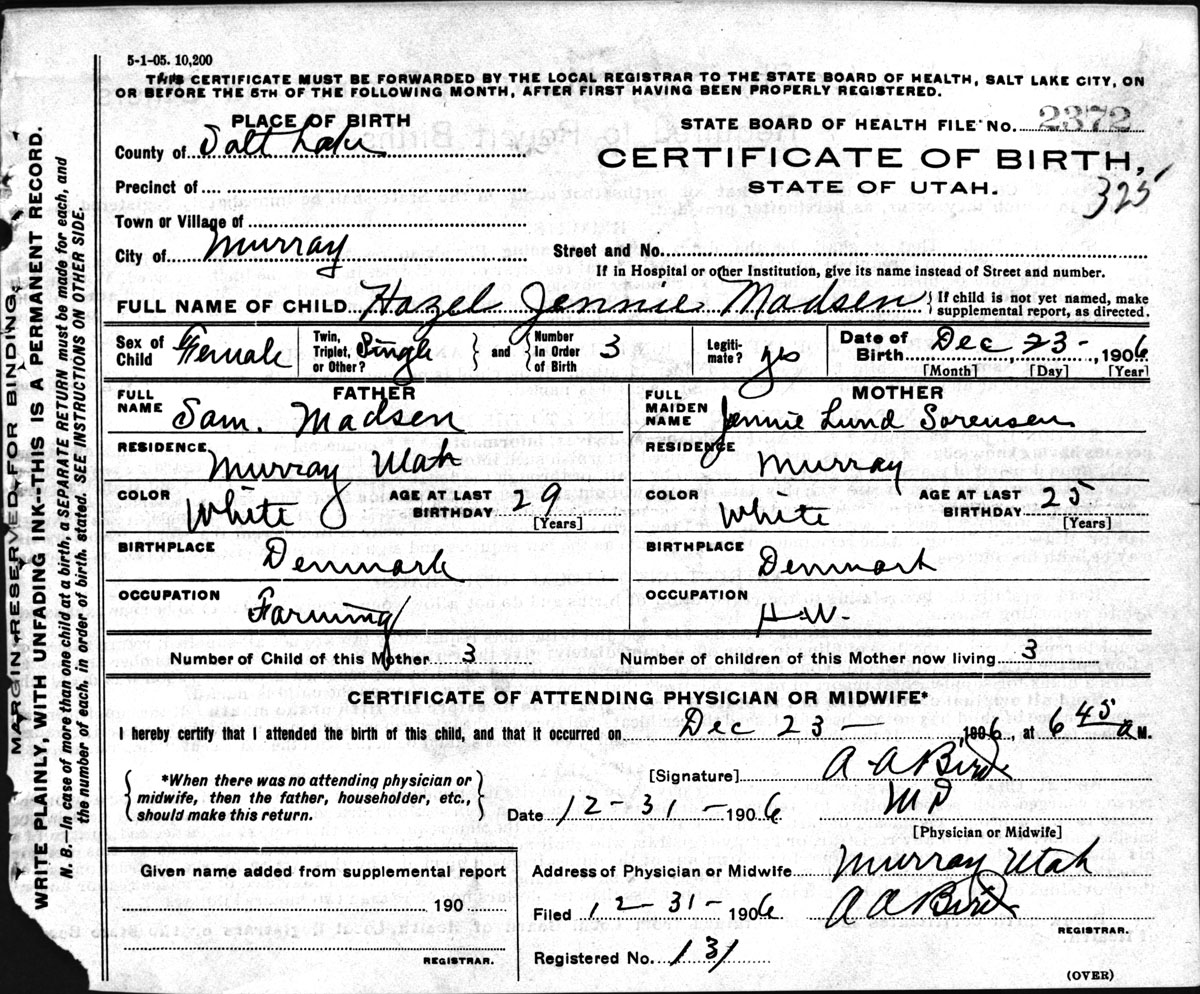 5-1-05. 10,200
THIS CERTIFICATE MUST BE FORWARDED BY THE LOCAL REGISTRAR TO THE STATE BOARD OF HEALTH, SALT LAKE CITY, ON
OR BEFORE THE 5TH OF THE FOLLOWING MONTH, AFTER FIRST HAVING BEEN PROPERLY REGISTERED.
MARGIN RESERVED FOR BINDING.
WRITE PLAINLY, WITH UNFADING INK--THIS IS A PERMANENT RECORD.
N. B.—In case of more than one child at a birth, a SEPARATE RETURN must be made for each, and
the number of each, in order of birth, stated. SEE INSTRUCTIONS ON OTHER SIDE.
PLACE OF BIRTH
County of Salt Lake
Precinct of
Town or Village of
City of Murray
STATE BOARD OF HEALTH FILE No. 2372
CERTIFICATE OF BIRTH,
STATE OF UTAH.
325
Street and No.
If in Hospital or other Institution, give its name instead of Street and number.
FULL NAME OF CHILD Hazel Jennie Madsen { If child is not yet named, make
supplemental report, as directed.
Sex of Child Female
Twin, Triplet, or Other? Single } and { Number In Order of Birth 3
Legiti-mate? yes
Date of Birth Dec 23 - , 1906
[Month] [Day] [Year]
FATHER
FULL NAME Sam. Madsen
RESIDENCE Murray Utah
COLOR White AGE AT LAST BIRTHDAY 29
[Years]
BIRTHPLACE Denmark
OCCUPATION Farming
MOTHER
FULL MAIDEN NAME Jennie Lund Sorensen
RESIDENCE Murray
COLOR White AGE AT LAST BIRTHDAY 25
[Years]
BIRTHPLACE Denmark
OCCUPATION H.W.
Number of Child of this Mother 3 Number of children of this Mother now living 3
CERTIFICATE OF ATTENDING PHYSICIAN OR MIDWIFE*
I hereby certify that I attended the birth of this child, and that it occurred on Dec 23 - , 1906, at 6 45 a M.
{ *When there was no attending physician or
midwife, then the father, householder, etc.,
should make this return. }
[Signature] A A Bird
Date 12-31-1906 MD
[Physician or Midwife]
Given name added from supplemental report
190
REGISTRAR.
Address of Physician or Midwife Murray Utah
Filed 12-31-1906 A A Bird
REGISTRAR.
Registered No. 131
(OVER)